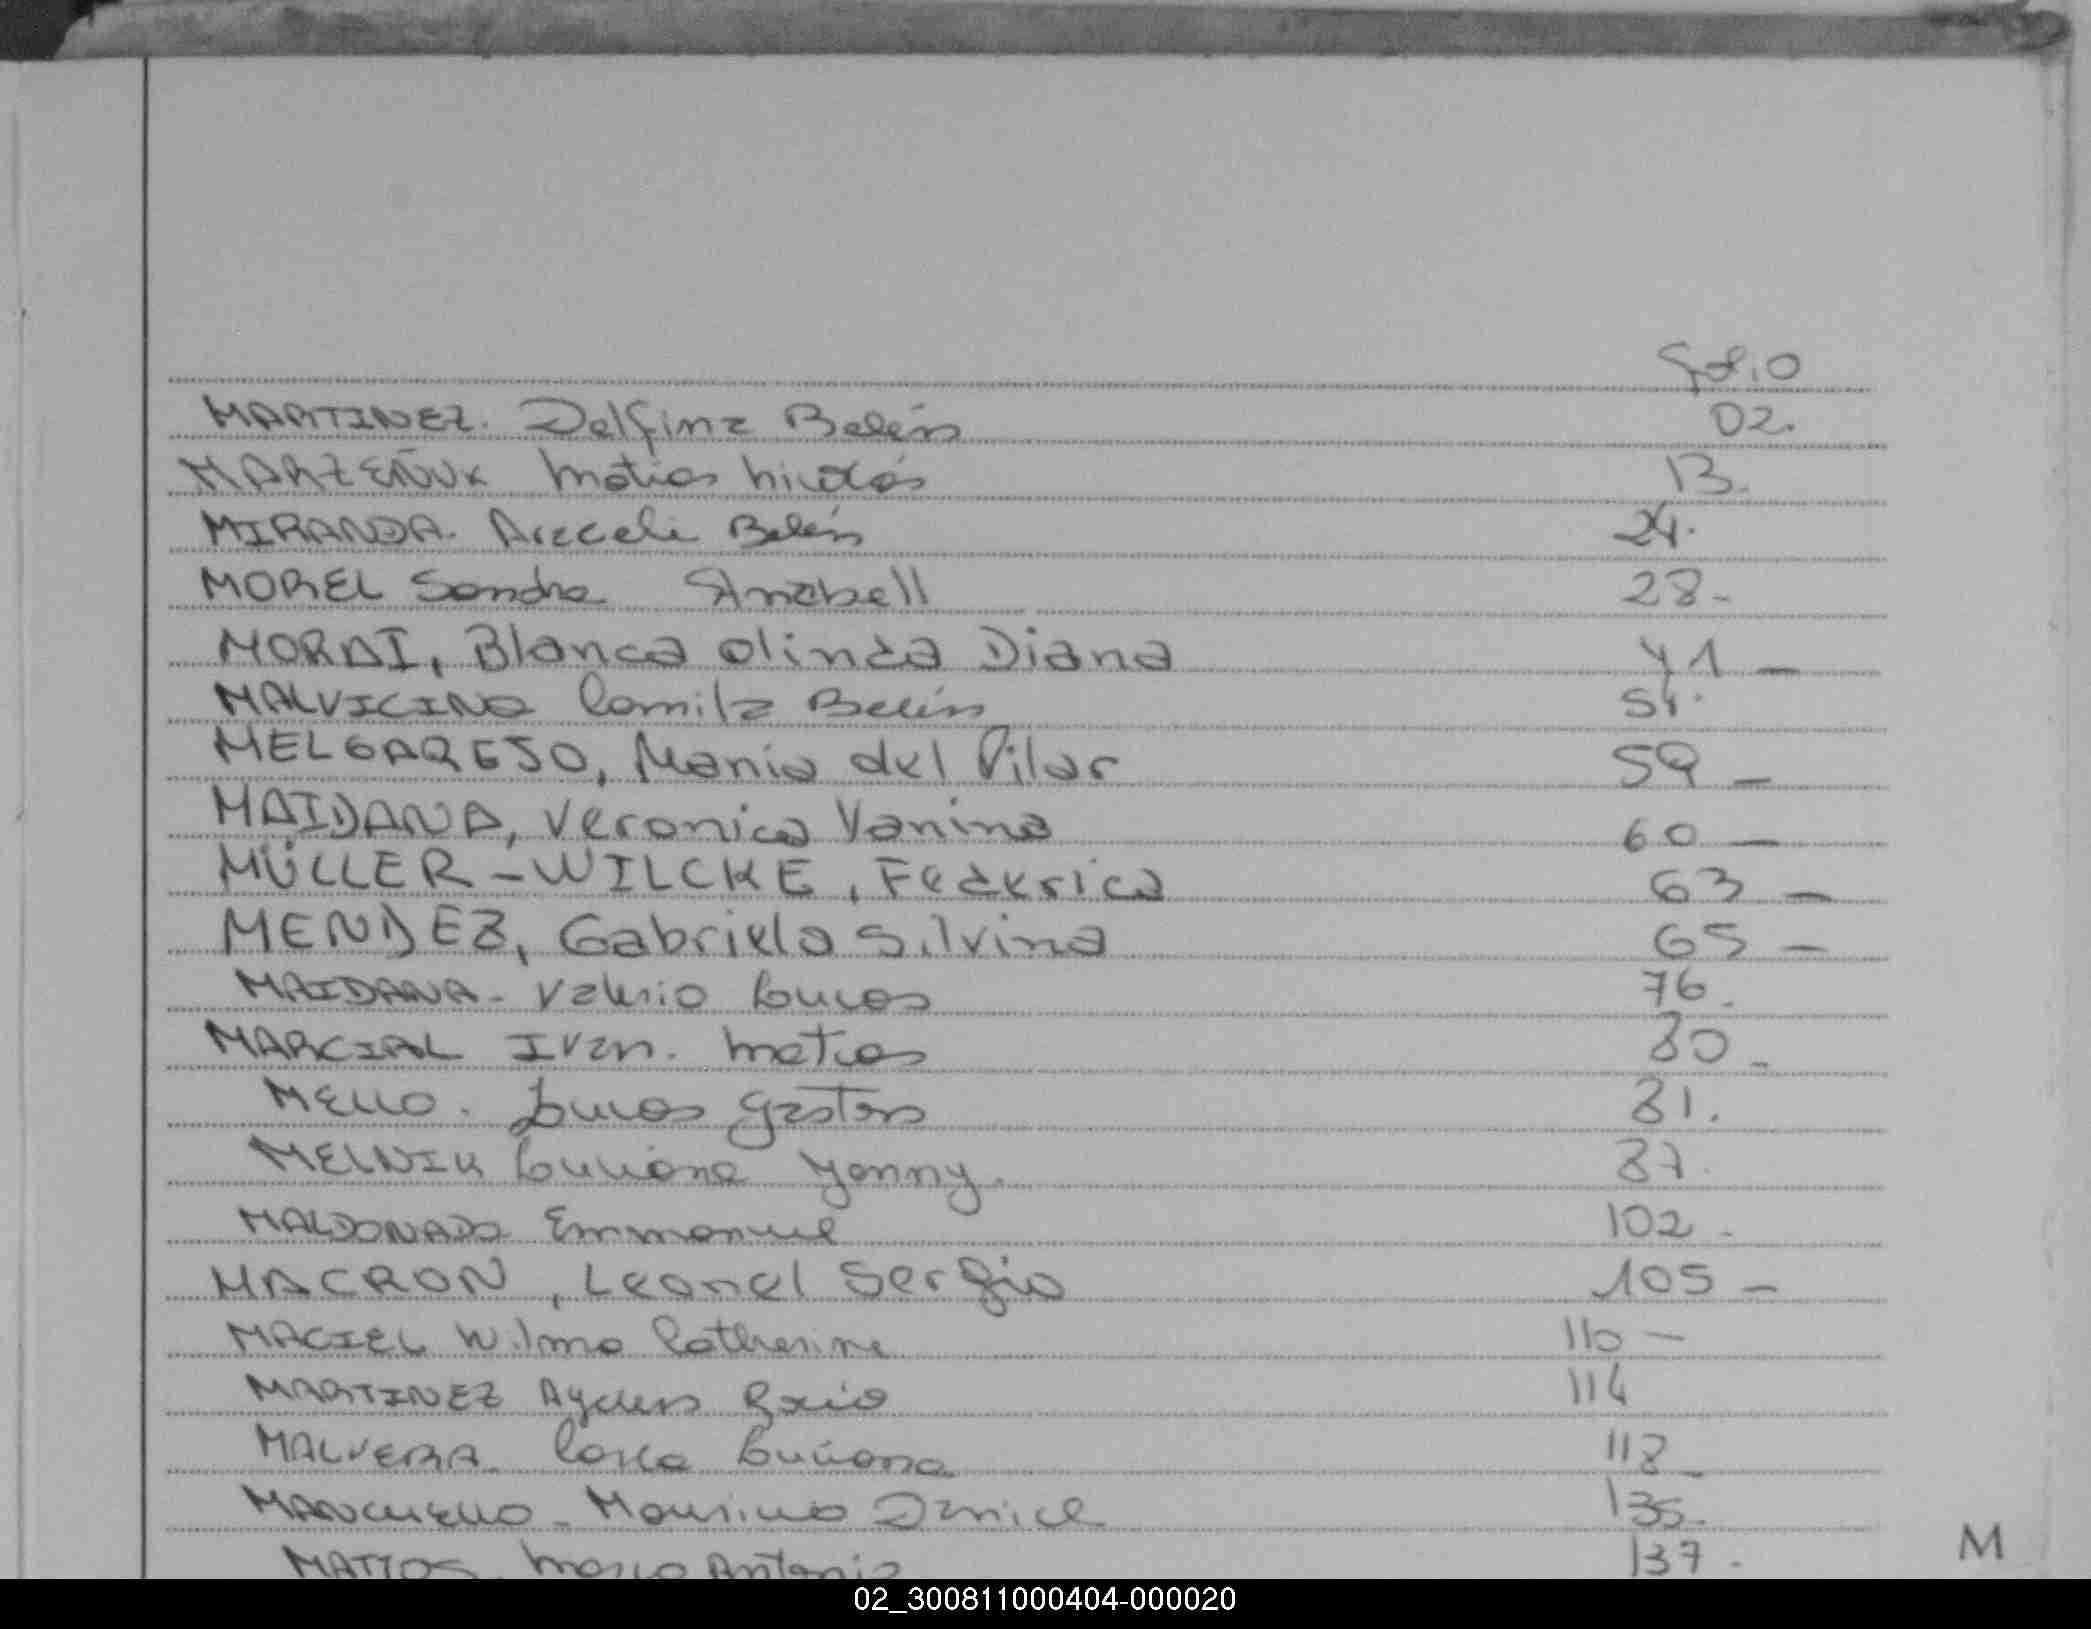 Folio
MARTINEZ. Delfina Belén 02.
MARZEÑUK Matias Nicolás 13.
MIRANDA. Araceli Belén 24.
MOREL Sandra Anabell 28-
MORAI, Blanca Olinda Diana 41 -
MALVICINO Camila Belén 54.
MELGAREJO, Maria del Pilar 59 -
MAIDANA, Veronica Vanina 60 -
MÜLLER-WILCKE, Federica 63 -
MENDEZ, Gabriela Silvina 65 -
MAIDANA- Valerio Lucas 76.
MARCIAL Ivan. Matias 80 -
MELLO. Lucas Gastón 81.
MELNIK Luciana Yanny. 87.
MALDONADO Emmanuel 102.
MACRON, Leonel Sergio 105 -
MACIEL Wilma Catherine 110 -
MARTINEZ Aycelen Rocio 114
MALVERA Carla Luciana 118 -
MANCUELLO - Mauricio Daniel 135.
MATTOS. Marco Antonio 137.
M
02_300811000404-000020